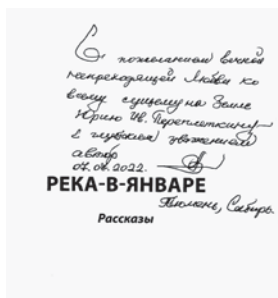 С пожеланием вечной
непреходящей Любви ко
всему сущему на Земле
Юрию Ив. Переплеткину
с глубоким уважением
автор
07.07.2022.
РЕКА-В-ЯНВАРЕ
Тюмень, Сибирь.
Рассказы